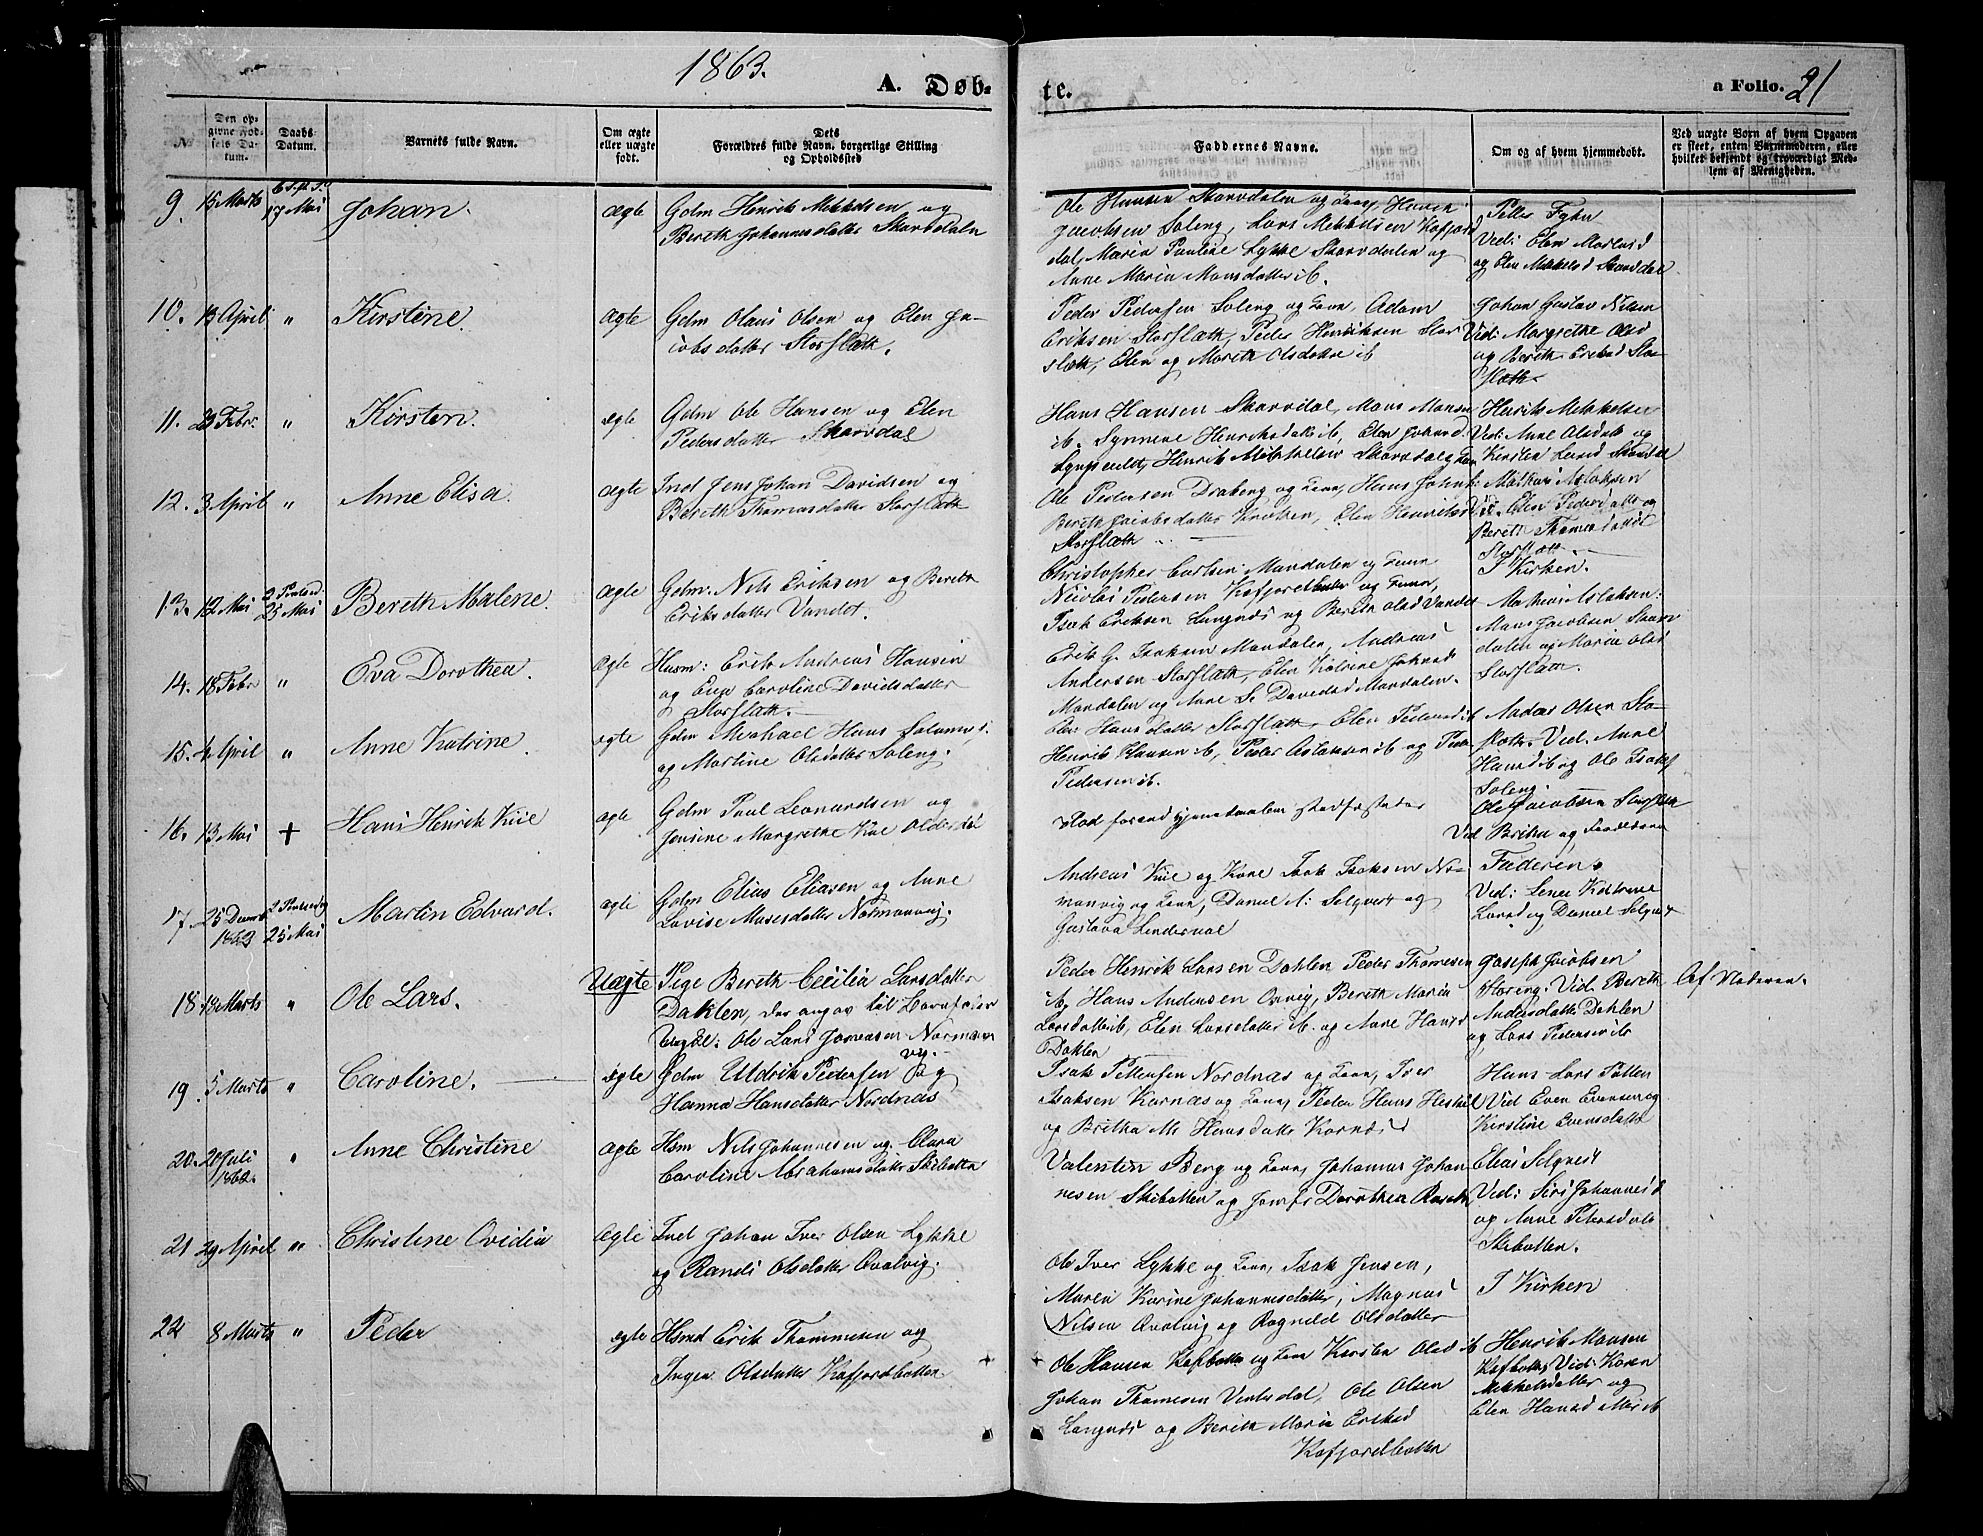 1863.
A. Døb-
te.
a Folio. 21
No
Den op-
givne Fød-
sels Da-
tum.
Daabs
Datum.
Barnets fulde Navn.
Om ægte
eller uægte
født.
Dets
Forældres fulde Navn, borgerlige Stilling
og Opholdssted
Faddernes Navne.
Om og af hvem hjemmedøbt.
Ved uægte Børn af hvem Opgaven
er skeet, enten Barnemoderen, eller
hvilket bekjendt og troværdigt Med-
lem af Menigheden.
9. 15 Marts 17 Mai Johan. ægte Gdm Henrik Mikkelsen og
Bereth Johannesdatter Skarvdalen
Ole Hansen Skarvdalen og Kone, Henrik
Jacobsen Soleng, Lars Mikkelsen Kofjord
dal, Maria Pauline Lykke Skarvdalen og
Anne Maria Monsdatter ib.
Peder
Ved: Elen
og Elen Mikkelsd Skarvdal
10. 13 April " Kirstine. ægte Gdm Olaus Olsen og Elen Ja-
cobsdatter Storslæth.
Peder Pedersen Soleng og Kone, Adam
Eriksen Storslæth, Peder Henriksen Stor
slæth, Elen og Mareth Olsdatter ib
Johan Gustav Nilsen
Ved: Margrethe Olsd
og Bereth Eriksd Stor
slæth.
11. 23 Febr. " Kirsten. ægte Gdm Ole Hansen og Elen
Pedersdatter Skarvdal
Hans Hansen Skarvdal, Mons Monsen
ib. Synneve Henriksdatt ib, Elen Johnsd.
Lyngseidet, Henrik Mikkelsen Skarvdal og Kone
Henrik Mikkelsen
Ved: Anne Olsdatt og
Kirsten Larsd Skarvdal
12. 3 April " Anne Elisa. ægte Ind Jens Johan Davidsen og
Bereth Thomasdatter Storslæth
Ole Pedersen Draberg og Kone, Hans John
Bereth Jacobsdatter Kroken, Elen Henriksd
Storslæth
Mathis Aslaksen
Ved: Elen Pedersdatt og
Bereth Thomasdatter
Storslæth.
13. 12 Mai 25 Mai Bereth Malene. ægte Gdm. Nils Eriksen og Bereth
Eriksdatter Vandet.
Christopher Carlsen Mandalen og Kone
Nicolai Pedersen Kofjordbotn og Kone,
Isak Eriksen Langnæs og Bereth Olsd Vandet
I Kirken.
14. 18 Febr " Eva Dorothea. ægte Husm: Erik Andreas Hansen
og Caroline Davidsdatter
Storslæth.
Erik G. Isaksen Mandalen, Andreas
Andersen Storslæth, Elen Katrine Johnsd
Mandalen og Anne S. Davidsd Mandalen.
Mathis Aslaksen
Mons Jacobsen Skarv
dalen og Maria Olsd
Storslæth.
15. 4 April " Anne Katrine. ægte Gdm Michael Hans
og Martine Olsdatter Soleng.
Elen Hansdatter Storslæth, Elen Pedersd ib
Henrik Hansen ib, Peder Aslaksen ib og Peder
Pedersen ib.
Andreas Olsen Stor
slæth. Ved. Anne
Hansd ib og Ole Isaks
Soleng.
16. 13 Mai + Hans Henrik Kiil ægte Gdm Paul Leonardsen og
Jensine Margrethe Kiil Olderdal
Ole Jacobsen Storslæth
Ved Brita og Forældrene
17. 25 Decemb 25 Mai Martin Edvard. ægte Gdm Elias Eliasen og Anne
Lovise Mosesdatter Normanvig.
Andreas Kiil og Kone Isak Isaksen Nor-
manvig og Kone, Daniel A: Selqvist og
Gustava Lindervold
Faderen.
Ved: Lena Katrine
Larsd og Daniel Selqvist
18. 18 Marts " Ole Lars. Uægte Pige Bereth Cecilia Larsdatter
Dahlen, der angav til Barnefader
Ungkl: Ole Lars Jonassen Norman
vig.
Peder Henrik Larsen Dahlen Peder Thomesen
ib, Hans Andersen Odvig, Bereth Maria
Larsdatter ib, Elen Larsdatter ib. og Anne Hansd
Dahlen
Joseph Jacobsen
Ved. Bereth
Andersdatter Dahlen
og Lars Pedersen ib
Af Moderen.
19 5 Marts " Caroline. ægte Gdm Uldrik Pedersen og
Hanna Hansdatter Nordnæs
Isak Pedersen Nordnæs og Kone, Iver
Isaksen Kornæs og Kone, Peder Hans
og Britha M. Hansdatt Kornæs
Hans Lars Pollen
Ved Even Evensen og
Kirstine Evensdatter
20. 20 Juli
1862. " Anne Christine ægte Hsm Nils Johannesen og Clara
Caroline Abrahamsdatter Skibotten
Valentin Berg og Kone, Johannes Johan
nesen Skibotten og Jomfr Dorothea Rasch
Elias Selqvist
Ved: Siri Johannesd
og Anne Pedersdatt
Skibotten.
21 29 April " Christine Ovidia ægte Ind Johan Iver Olsen Lykke
og Randi Olsdatter Qvalvig.
Ole Iver Lykke og Kone, Isak Jensen,
Maren Karine Johannesdatter, Magnus
Nilsen Qvalvig og Ragnild Olsdatter
I Kirken
22 8 Marts " Peder ægte Hsmd Erik Thommesen og
Inger Olsdatter Kofjordbotten
Ole Hansen Kofbotten og Kone Kirsten Olsd ib
Johan Thomesen Vinterdal, Ole Olsen
Langnæs og Bereth Maria Eriksd
Kofjordbotten
Henrik Monsen
Kofbotten, Ved: Karen
Mikkelsdatter og
Elen Hansd ib